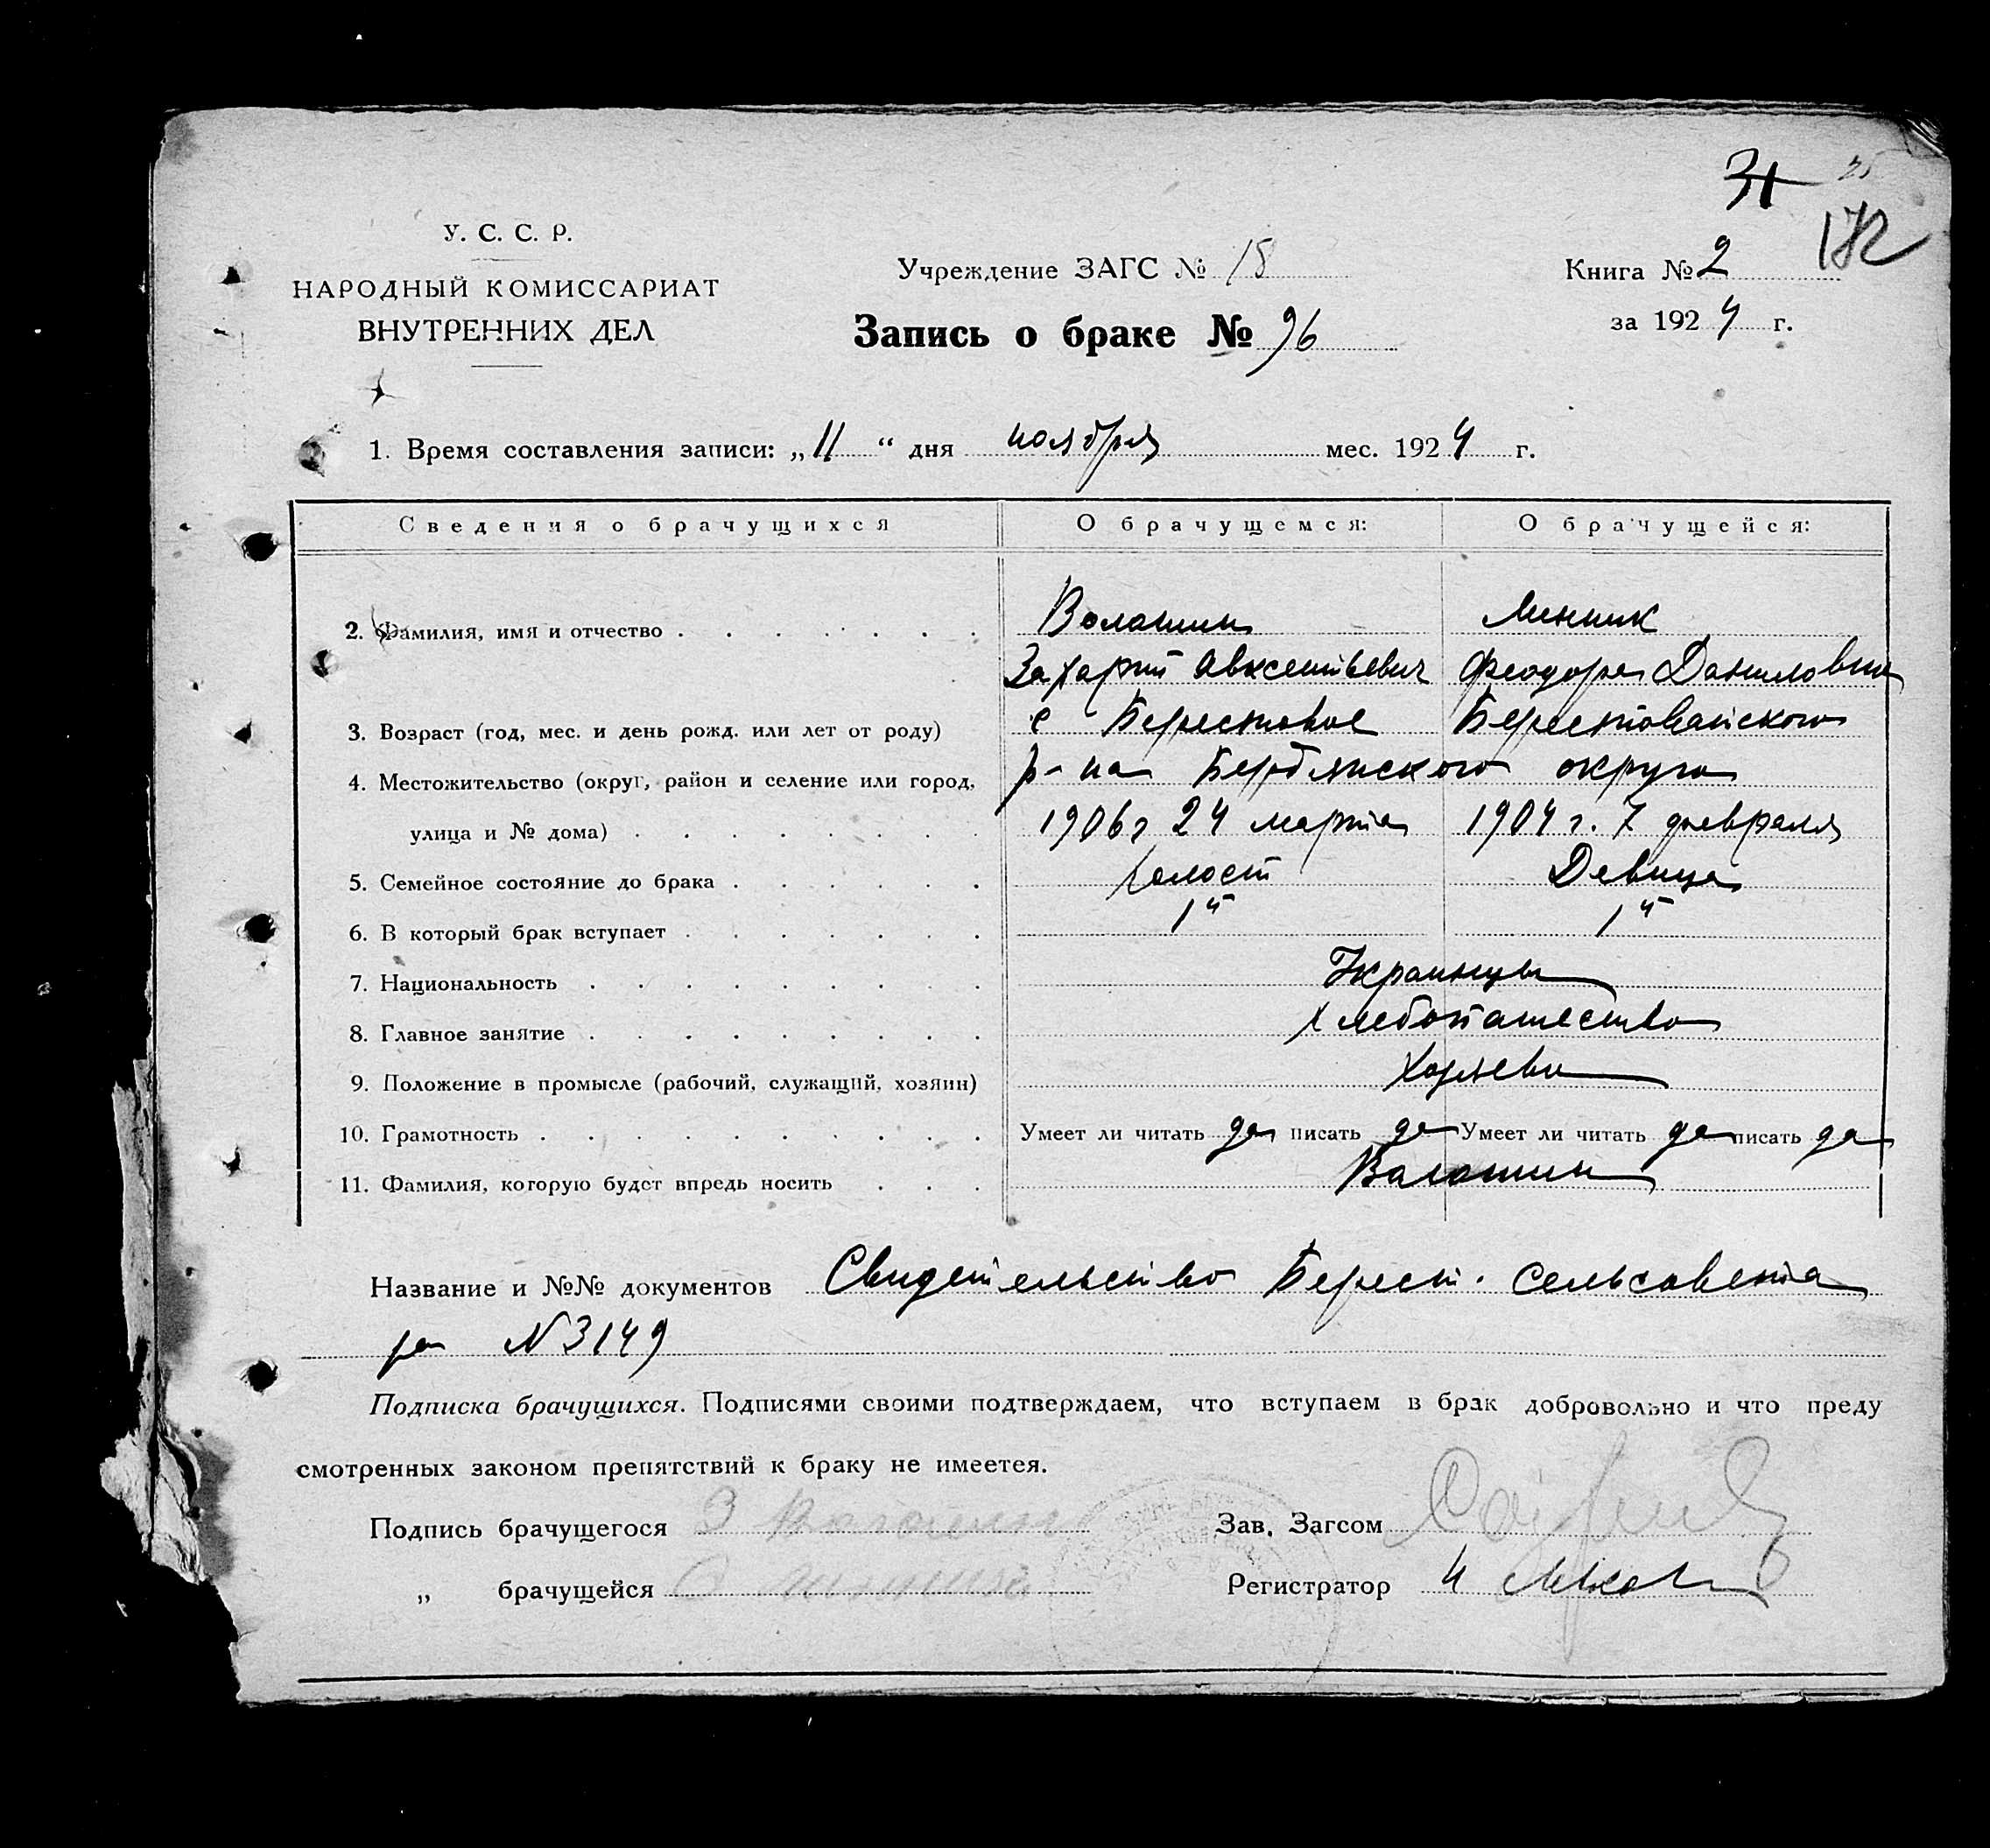 31
172
У. С. С. Р.
НАРОДНЫЙ КОМИССАРИАТ
ВНУТРЕННИХ ДЕЛ
Учреждение ЗАГС № 18
Запись о браке № 96
Книга № 2
за 1924 г.
1. Время составления записи: „11“ дня ноября мес. 1924 г.
Сведения о брачущихся О брачущемся: О брачущейся:
2. Фамилия, имя и отчество Волошин Минник
Захарий Авксентьевич Феодора Даниловна
3. Возраст (год, мес. и день рожд. или лет от роду) с Берестовое Берестовайского
4. Местожительство (округ, район и селение или город, р-на Бердянского округа
улица и № дома) 1906 г 24 марта 1904 г. 7 февраля
5. Семейное состояние до брака холост Девица
6. В который брак вступает 1й 1й
7. Национальность Украинцы
8. Главное занятие хлебопашество
9. Положение в промысле (рабочий, служащий, хозяин) Хозяева
10. Грамотность Умеет ли читать да писать да Умеет ли читать да писать да
11. Фамилия, которую будет впредь носить Волошин
Название и №№ документов Свидетельство Берест. сельсовета
за N 3149
Подписка брачущихся. Подписями своими подтверждаем, что вступаем в брак добровольно и что преду
смотренных законом препятствий к браку не имеетея.
Подпись брачущегося З Волошин Зав. Загсом
„ брачущейся Регистратор